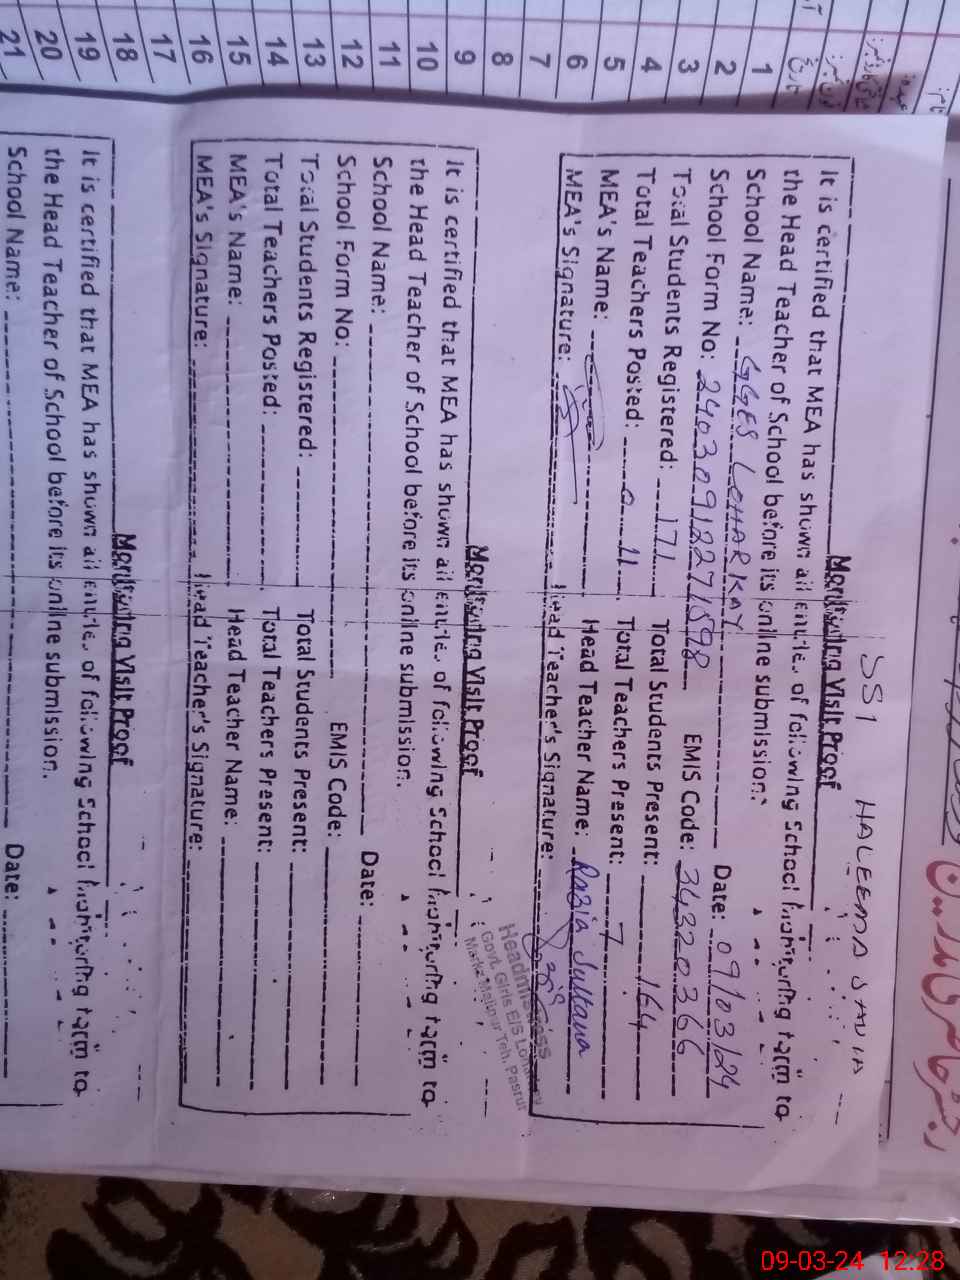 SST HALEEMA SADIA
Monitoring Visit Proof
It is certified that MEA has shown all entries of following School Monitoring form to
the Head Teacher of School before its online submission.
School Name: GGES LOHARKAY Date: 09/03/24
School Form No: 24030912271598 EMIS Code: 34320366
Total Students Registered: 171 Total Students Present: 164
Total Teachers Posted: 11 Total Teachers Present: 7
MEA's Name: Head Teacher Name: Razia Sultana
MEA's Signature: Head Teacher's Signature:
Headmistress
Govt. Girls E/S
Teh. Pasrur
Monitoring Visit Proof
It is certified that MEA has shown all entries of following School Monitoring form to
the Head Teacher of School before its online submission.
School Name: Date:
School Form No: EMIS Code:
Total Students Registered: Total Students Present:
Total Teachers Posted: Total Teachers Present:
MEA's Name: Head Teacher Name:
MEA's Signature: Head Teacher's Signature:
Monitoring Visit Proof
It is certified that MEA has shown all entries of following School Monitoring form to
the Head Teacher of School before its online submission.
School Name: Date:
1
2
3
4
5
6
7
8
9
10
11
12
13
14
15
16
17
18
19
20
21
09-03-24 12:28